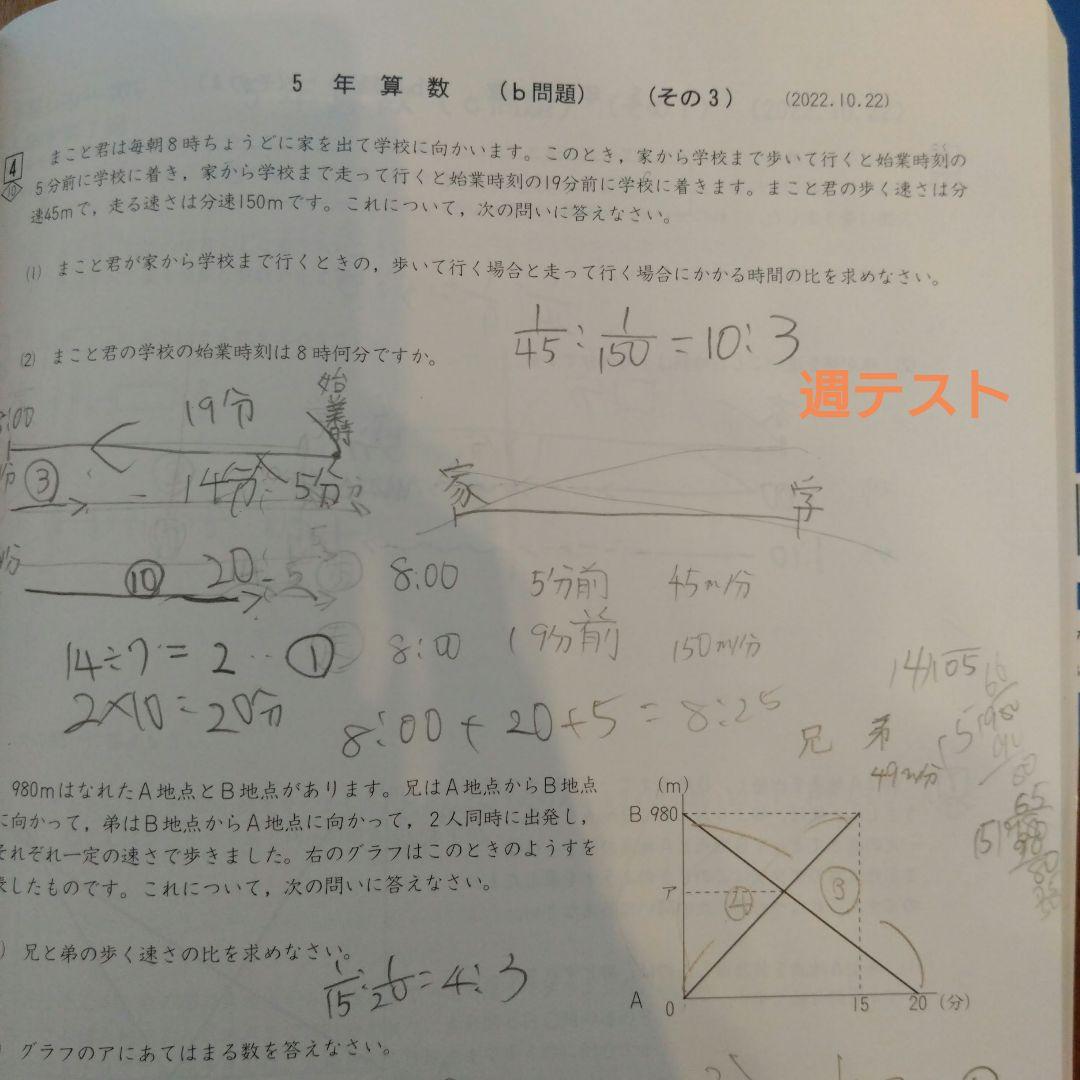 5年算数 (b問題) (その3) (2022.10.22)
4
10
まこと君は毎朝8時ちょうどに家を出て学校に向かいます。このとき，家から学校まで歩いて行くと始業時刻の
5分前に学校に着き，家から学校まで走って行くと始業時刻の19分前に学校に着きます。まこと君の歩く速さは分
速45mで，走る速さは分速150mです。これについて，次の問いに答えなさい。
(1) まこと君が家から学校まで行くときの，歩いて行く場合と走って行く場合にかかる時間の比を求めなさい。
1/45 : 1/150 = 10:3
(2) まこと君の学校の始業時刻は8時何分ですか。
週テスト
始業時
8:00 19分
③ 14分 5分
家 学
⑩ 20 5
8:00 5分前 45m/分
8:00 19分前 150m/分
14÷7=2 ①
2×10=20分
8:00+20+5=8:25
14)105
兄 弟
49m/分
980mはなれたA地点とB地点があります。兄はA地点からB地点
に向かって，弟はB地点からA地点に向かって，2人同時に出発し，
それぞれ一定の速さで歩きました。右のグラフはこのときのようすを
表したものです。これについて，次の問いに答えなさい。
(m)
B 980
ア
④ ③
A 0 15 20 (分)
) 兄と弟の歩く速さの比を求めなさい。
1/15 : 1/20 = 4:3
) グラフのアにあてはまる数を答えなさい。